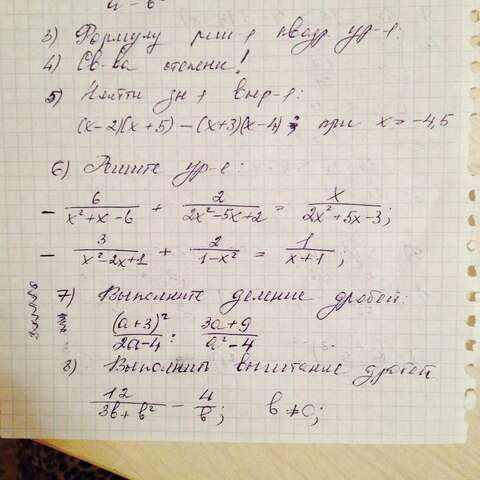 a - b²
3) Формулу реш-я квадр. ур-я:
4) Св-ва степени!
5) Найти зн-я выр-я:
(x-2)(x+5) - (x+3)(x-4); при x = -4,5
6) Решите ур-е:
- 6/(x²+x-6) + 2/(2x²-5x+2) = x/(2x²+5x-3);
- 3/(x²-2x+1) + 2/(1-x²) = 1/(x+1);
7) Выполните деление дробей:
(a+3)²/(2a-4) : (3a+9)/(a²-4)
8) Выполнить вычитание дробей
12/(3b+b²) - 4/b; b≠0;